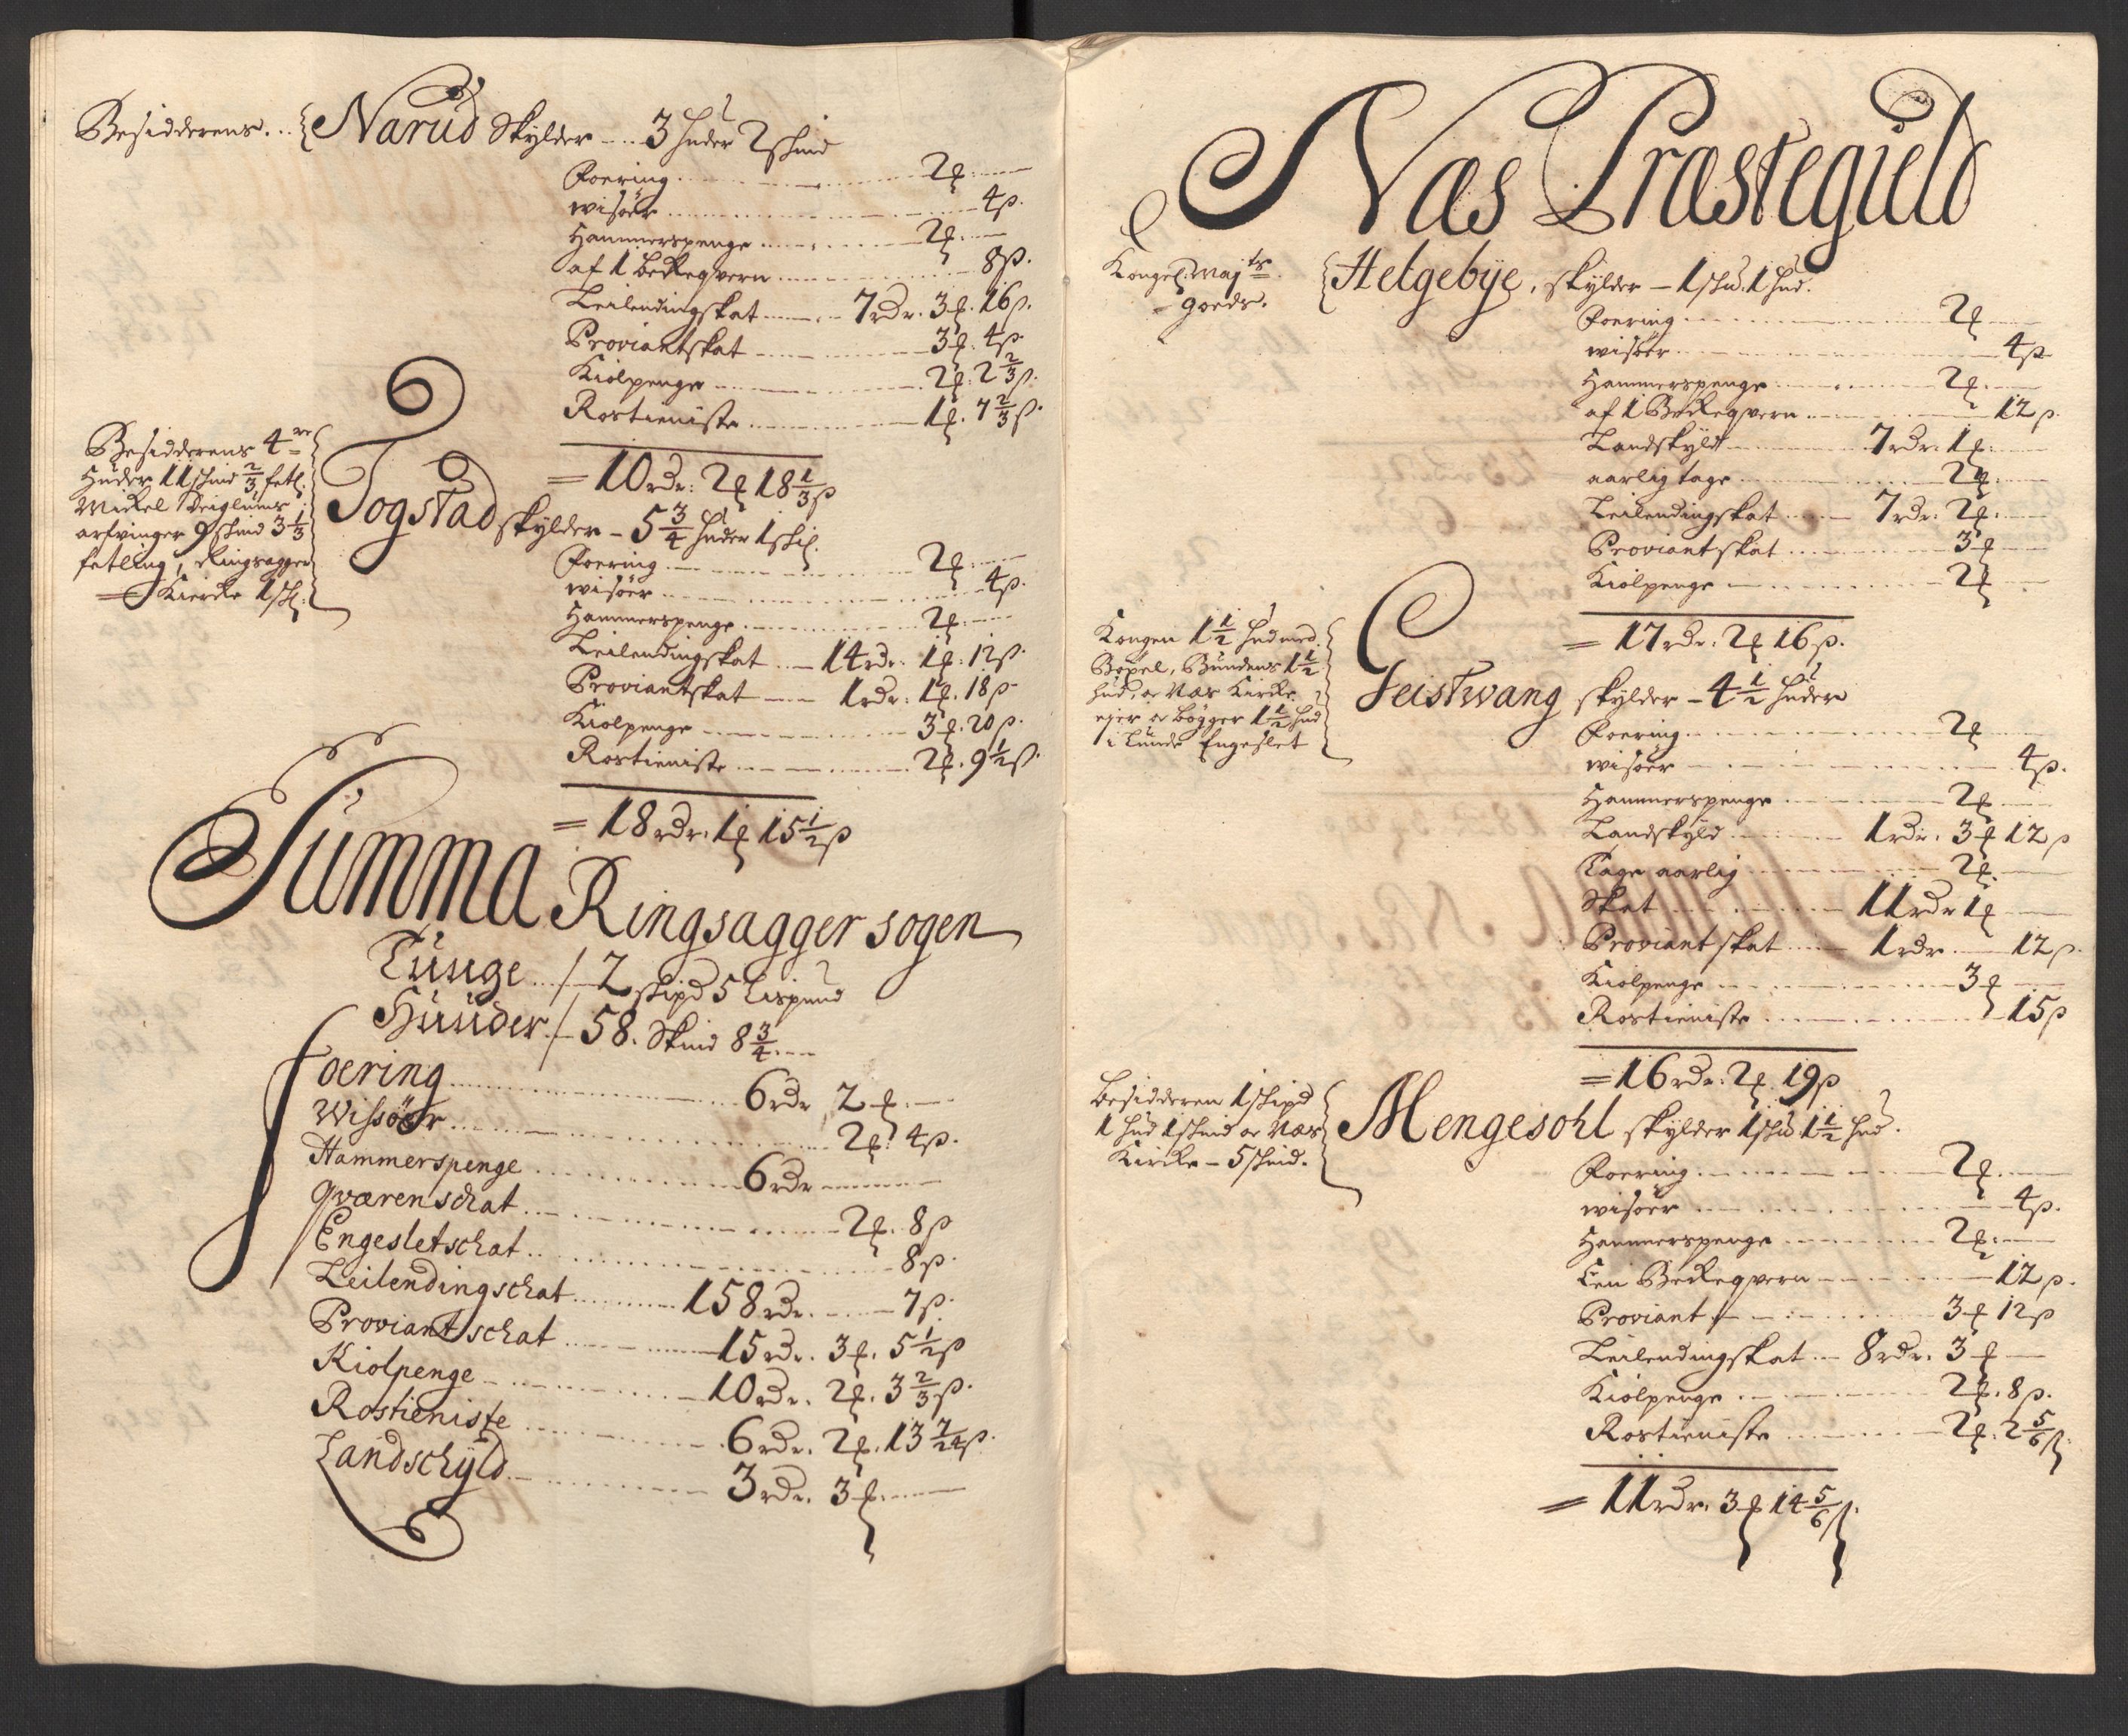 Besidderens... Narud Skylder - 3 huder 2 skind
Foering 2 ℔
wisöer 4 ß.
Hammerspenge 2 ℔
af 1 beckeqvern 8 ß.
Leilendingskat 7 rdr. 3 ℔. 16 ß.
Proviantskat 3 ℔. 4 ß
Kiolpenge 2 ℔. 2 2/3 ß.
Rostieniste 1 ℔. 7 2/3 ß.
= 10 rdr. 2 ℔ 18 1/3 ß
Besidderens 4re
huder 11 skind 2/3 fetl.
Mickel
arfvinger 9 skind 3 1/3
fetling, Ringsagger
Kircke 1 sk.
Togstad skylder - 5 3/4 huder 1 ski.
Foering 2 ℔
wisöer 4 ß.
Hammerspenge 2 ℔
Leilendingskat 14 rdr. 1 ℔. 12 ß.
Proviantskat 1 rdr. 1 ℔. 18 ß
Kiolpenge 3 ℔. 20 ß.
Rostieniste 2 ℔. 9 1/2 ß.
= 18 rdr. 1 ℔ 15 1/2 ß
Summa Ringsagger sogen
Tunge / 2 skipd 5 Lispund
Huuder / 58. Skind 8 3/4
Foering 6 rdr 2 ℔
Wissöer 2 ℔. 4 ß.
Hammerspenge 6 rdr
Qværenschat 2 ℔. 8 ß
Engesletschat 8 ß.
Leilendingschat 158 rdr. 7 ß.
Proviantschat 15 rdr. 3 ℔. 5 1/2 ß
Kiolpenge 10 rdr. 2 ℔. 3 2/3 ß.
Rostieniste 6 rdr. 2 ℔. 13 7/24 ß.
Landschyld 3 rdr. 3 ℔.
Næs Præstegield
Kongel: Majts
goeds.
Helgebye, skylder - 1 sku. 1 hud.
Foering 2 ℔
wisöer 4 ß
Hammerspenge 2 ℔
af 1 Beckeqvern 12 ß
Landskyld 7 rdr. 1 ℔.
aarlig tage 2 ℔
Leilendingskat 7 rdr. 2 ℔.
Proviantskat 3 ℔
Kiolpenge 2 ℔
= 17 rdr. 2 ℔ 16 ß.
Kongen 1 1/2 hud med
Böxel, Bundens 1 1/2
hud, oc Næs Kircke
ejer oc bögger 1 1/2 hud
i Lunde Engeslet
Geistwang skylder - 4 1/2 huder
Foering 2 ℔
wisöer 4 ß.
Hammerspenge 2 ℔
Landskyld 1 rdr. 3 ℔ 12 ß
Tage aarlig 2 ℔.
Skat 11 rdr 1 ℔
Proviantskat 1 rdr 12 ß.
Kiolpenge 3 ℔
Rostieniste 15 ß
= 16 rdr. 2 ℔. 19 ß
Besidderen 1 skipd
1 hud 1 skind oc Næs
Kircke - 5 skind.
Mengesohl skylder 1 sku 1 1/2 hud.
Foering 2 ℔
wisöer 4 ß.
Hammerspenge 2 ℔.
Een Beckeqvern 12 ß.
Proviant 3 ℔ 12 ß
Leilendingskat 8 rdr. 3 ℔
Kiolpenge 2 ℔. 8 ß.
Rostieniste 2 ℔. 2 5/6 ß.
= 11 rdr. 3 ℔ 14 5/6 ß.